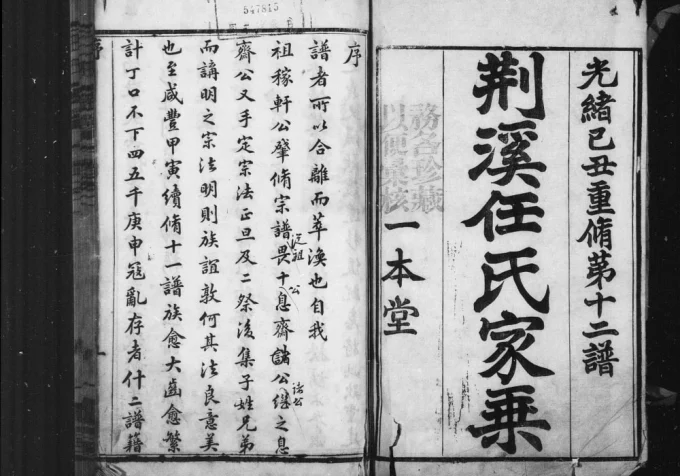 光緒己丑重脩苐十二譜
荆溪任氏家乗
一本堂
務各珍藏
以便核
547815
序
譜者所以合離而萃渙也自我
祖稼軒公肇脩宗譜畏十從祖息齋公諸公继之息
齋公又手定宗法正旦及二祭後集子姓兄弟
而講明之宗法明則族誼敦何其法良意美
也至咸豐甲寅續脩十一譜族愈大齒愈繁
計丁口不下四五千庚申寇亂存者什二譜籍
序